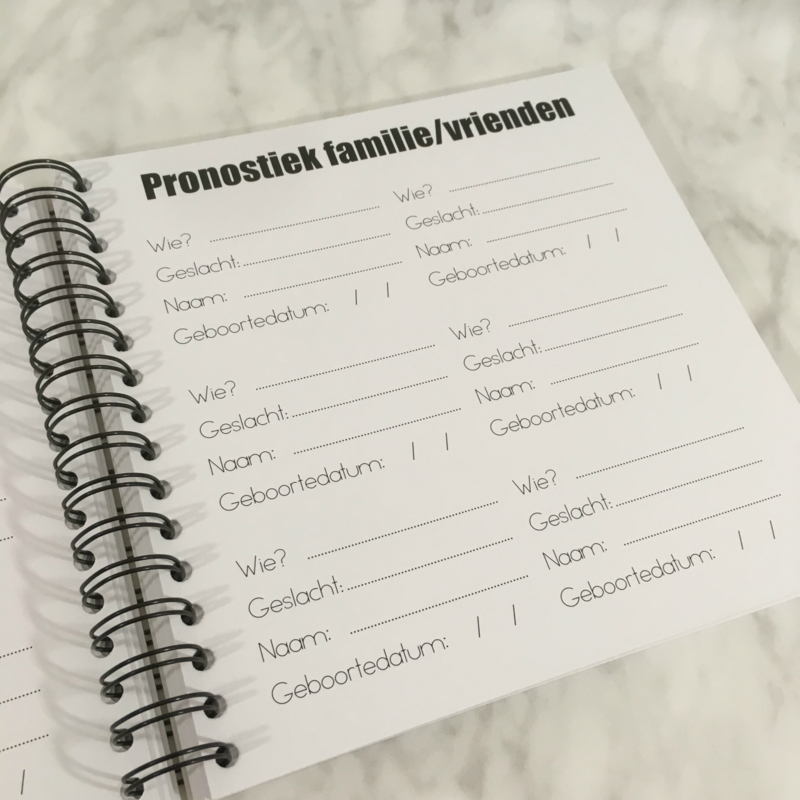 Pronostiek familie/vrienden
Wie? ....................
Geslacht: ....................
Naam: ....................
Geboortedatum: / /
Wie? ....................
Geslacht: ....................
Naam: ....................
Geboortedatum: / /
Wie? ....................
Geslacht: ....................
Naam: ....................
Geboortedatum: / /
Wie? ....................
Geslacht: ....................
Naam: ....................
Geboortedatum: / /
Wie? ....................
Geslacht: ....................
Naam: ....................
Geboortedatum: / /
Wie? ....................
Geslacht: ....................
Naam: ....................
Geboortedatum: / /